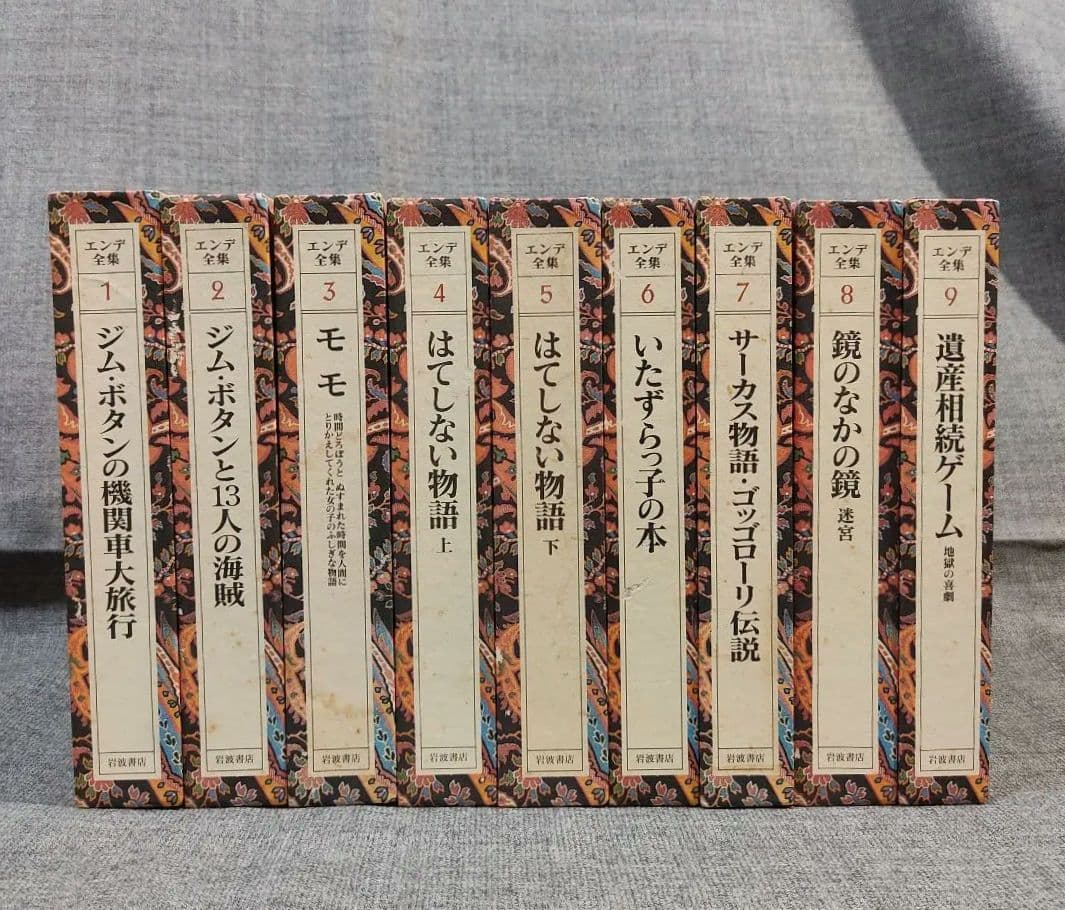 エンデ
全集
1
ジム・ボタンの機関車大旅行
岩波書店
エンデ
全集
2
ジム・ボタンと13人の海賊
岩波書店
エンデ
全集
3
モモ
時間どろぼうと ぬすまれた時間を人間に
とりかえしてくれた女の子のふしぎな物語
岩波書店
エンデ
全集
4
はてしない物語 上
岩波書店
エンデ
全集
5
はてしない物語 下
岩波書店
エンデ
全集
6
いたずらっ子の本
岩波書店
エンデ
全集
7
サーカス物語・ゴッゴローリ伝説
岩波書店
エンデ
全集
8
鏡のなかの鏡 迷宮
岩波書店
エンデ
全集
9
遺産相続ゲーム 地獄の喜劇
岩波書店